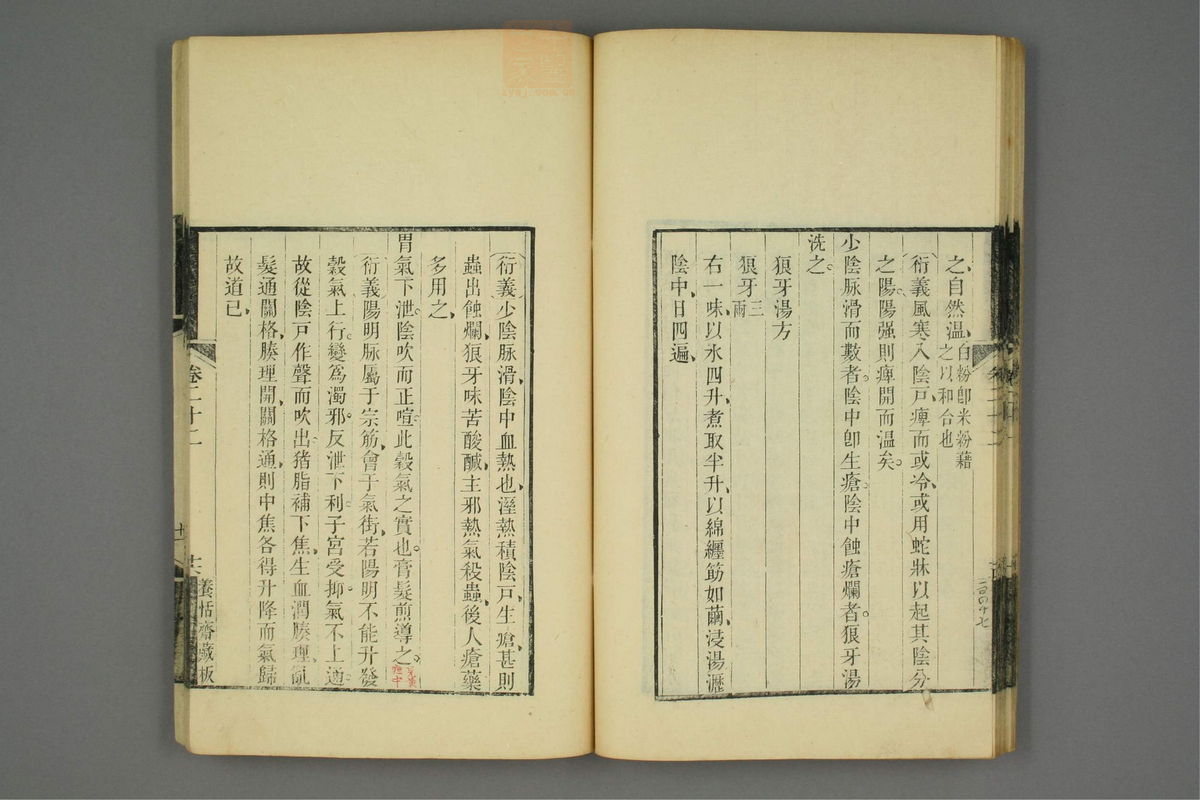 之自然温白粉卽米粉藉之以和合也
衍義風寒入陰戶痺而或冷或用蛇牀以起其陰分
之陽陽强則痺開而温矣
少陰脉滑而數者陰中卽生瘡陰中蝕瘡爛者狼牙湯
洗之
狼牙湯方
狼牙三兩
右一味以水四升煮取半升以綿纏筯如繭浸湯瀝
陰中日四遍
衍義少陰脉滑陰中血熱也溼熱積陰戶生瘡甚則
蟲出蝕爛狼牙味苦酸醎主邪熱氣殺蟲後人瘡藥
多用之
胃氣下泄陰吹而正喧此穀氣之實也膏髮煎導之
衍義陽明脉屬于宗筋會于氣街若陽明不能升發
穀氣上行變爲濁邪反泄下利子宮受抑氣不上通
故從陰戶作聲而吹出猪脂補下焦生血潤腠理亂
髮通關格腠理開關格通則中焦各得升降而氣歸
故道已
卷二十二
養恬齋藏板